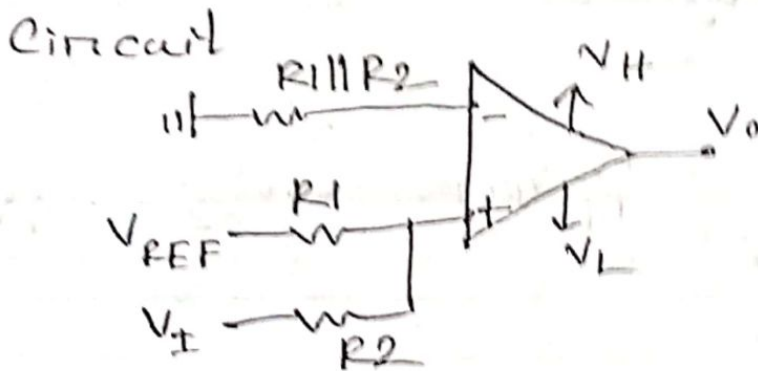 Circuit
R1||R2
VH
-
Vo
R1
VREF
+
VL
VI
R2